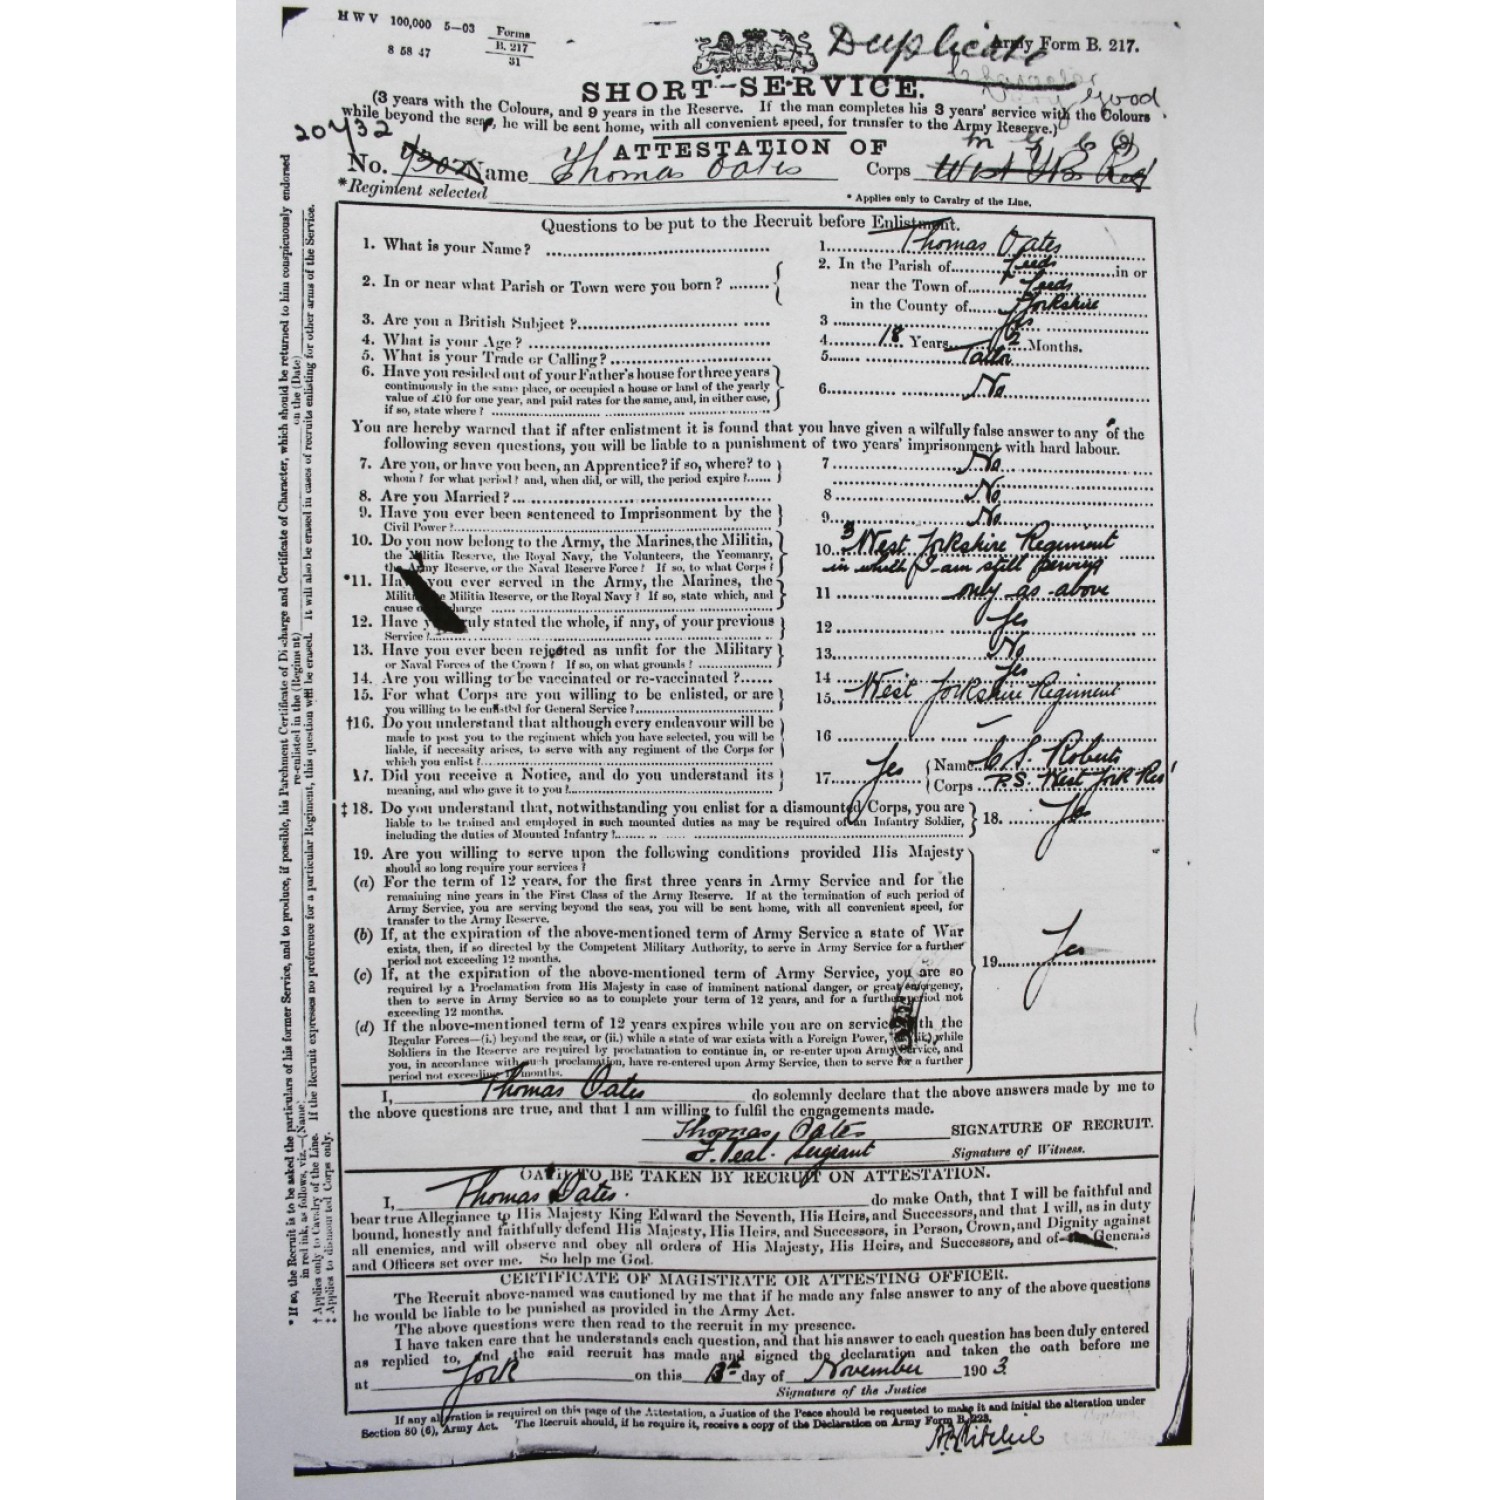 H W V 100,000 5—03 Forms B. 217 31
8 58 47
Duplicate Army Form B. 217.
SHORT-SERVICE.
Good
(3 years with the Colours, and 9 years in the Reserve. If the man completes his 3 years' service with the Colours
while beyond the seas, he will be sent home, with all convenient speed, for transfer to the Army Reserve.)
20432
ATTESTATION OF
No. 7302 Name Thomas Oates Corps West
*Regiment selected
* Applies only to Cavalry of the Line.
Questions to be put to the Recruit before Enlistment.
1. What is your Name? 1. Thomas Oates
2. In or near what Parish or Town were you born? 2. In the Parish of Leeds in or
near the Town of Leeds
in the County of Yorkshire
3. Are you a British Subject? 3 Yes
4. What is your Age? 4. 18 Years 2 Months.
5. What is your Trade or Calling? 5. Tailor
6. Have you resided out of your Father's house for three years
continuously in the same place, or occupied a house or land of the yearly
value of £10 for one year, and paid rates for the same, and, in either case,
if so, state where? 6. No
You are hereby warned that if after enlistment it is found that you have given a wilfully false answer to any of the
following seven questions, you will be liable to a punishment of two years' imprisonment with hard labour.
7. Are you, or have you been, an Apprentice? if so, where? to 7 No
whom? for what period? and, when did, or will, the period expire?
8. Are you Married? 8 No
9. Have you ever been sentenced to Imprisonment by the
Civil Power? 9. No
10. Do you now belong to the Army, the Marines, the Militia,
the Militia Reserve, the Royal Navy, the Volunteers, the Yeomanry, 10. 3 West Yorkshire Regiment
the Army Reserve, or the Naval Reserve Force? If so, to what Corps? in which I am still serving
*11. Have you ever served in the Army, the Marines, the
Militia, the Militia Reserve, or the Royal Navy? If so, state which, and 11 only as above
cause of discharge
12. Have you truly stated the whole, if any, of your previous
Service? 12 Yes
13. Have you ever been rejected as unfit for the Military
or Naval Forces of the Crown? If so, on what grounds? 13. No
14. Are you willing to be vaccinated or re-vaccinated? 14 Yes
15. For what Corps are you willing to be enlisted, or are 15. West Yorkshire Regiment
you willing to be enlisted for General Service?
†16. Do you understand that although every endeavour will be
made to post you to the regiment which you have selected, you will be
liable, if necessity arises, to serve with any regiment of the Corps for 16 —
which you enlist?
17. Did you receive a Notice, and do you understand its 17 Yes Name C S. Roberts
meaning, and who gave it to you? Corps P.S. West York Reg
‡18. Do you understand that, notwithstanding you enlist for a dismounted Corps, you are
liable to be trained and employed in such mounted duties as may be required of an Infantry Soldier, 18. Yes
including the duties of Mounted Infantry?
19. Are you willing to serve upon the following conditions provided His Majesty
should so long require your services?
(a) For the term of 12 years, for the first three years in Army Service and for the
remaining nine years in the First Class of the Army Reserve. If at the termination of such period of
Army Service, you are serving beyond the seas, you will be sent home, with all convenient speed, for
transfer to the Army Reserve.
(b) If, at the expiration of the above-mentioned term of Army Service a state of War
exists, then, if so directed by the Competent Military Authority, to serve in Army Service for a further
period not exceeding 12 months.
19. Yes
(c) If, at the expiration of the above-mentioned term of Army Service, you are so
required by a Proclamation from His Majesty in case of imminent national danger, or great emergency,
then to serve in Army Service so as to complete your term of 12 years, and for a further period not
exceeding 12 months.
(d) If the above-mentioned term of 12 years expires while you are on service with the
Regular Forces—(i.) beyond the seas, or (ii.) while a state of war exists with a Foreign Power, or (iii.) while
Soldiers in the Reserve are required by proclamation to continue in, or re-enter upon Army Service, and
you, in accordance with such proclamation, have re-entered upon Army Service, then to serve for a further
period not exceeding 12 months.
I, Thomas Oates do solemnly declare that the above answers made by me to
the above questions are true, and that I am willing to fulfil the engagements made.
Thomas Oates SIGNATURE OF RECRUIT.
Sergeant Signature of Witness.
OATH TO BE TAKEN BY RECRUIT ON ATTESTATION.
I, Thomas Oates. do make Oath, that I will be faithful and
bear true Allegiance to His Majesty King Edward the Seventh, His Heirs, and Successors, and that I will, as in duty
bound, honestly and faithfully defend His Majesty, His Heirs, and Successors, in Person, Crown, and Dignity against
all enemies, and will observe and obey all orders of His Majesty, His Heirs, and Successors, and of the Generals
and Officers set over me. So help me God.
CERTIFICATE OF MAGISTRATE OR ATTESTING OFFICER.
The Recruit above-named was cautioned by me that if he made any false answer to any of the above questions
he would be liable to be punished as provided in the Army Act.
The above questions were then read to the recruit in my presence.
I have taken care that he understands each question, and that his answer to each question has been duly entered
as replied to, and the said recruit has made and signed the declaration and taken the oath before me
at York on this 13th day of November 1903.
Signature of the Justice
If any alteration is required on this page of the Attestation, a Justice of the Peace should be requested to make it and initial the alteration under
Section 80 (6), Army Act. The Recruit should, if he require it, receive a copy of the Declaration on Army Form B. 228.
*If so, the Recruit is to be asked the particulars of his former Service, and to produce, if possible, his Parchment Certificate of Discharge and Certificate of Character, which should be returned to him conspicuously endorsed
in red ink, as follows, viz.—(Name) re-enlisted in the (Regiment) on the (Date)
†Applies only to Cavalry of the Line. If the Recruit expresses no preference for a particular Regiment, this question will be erased. It will also be erased in cases of recruits enlisting for other arms of the Service.
‡Applies to dismounted Corps only.